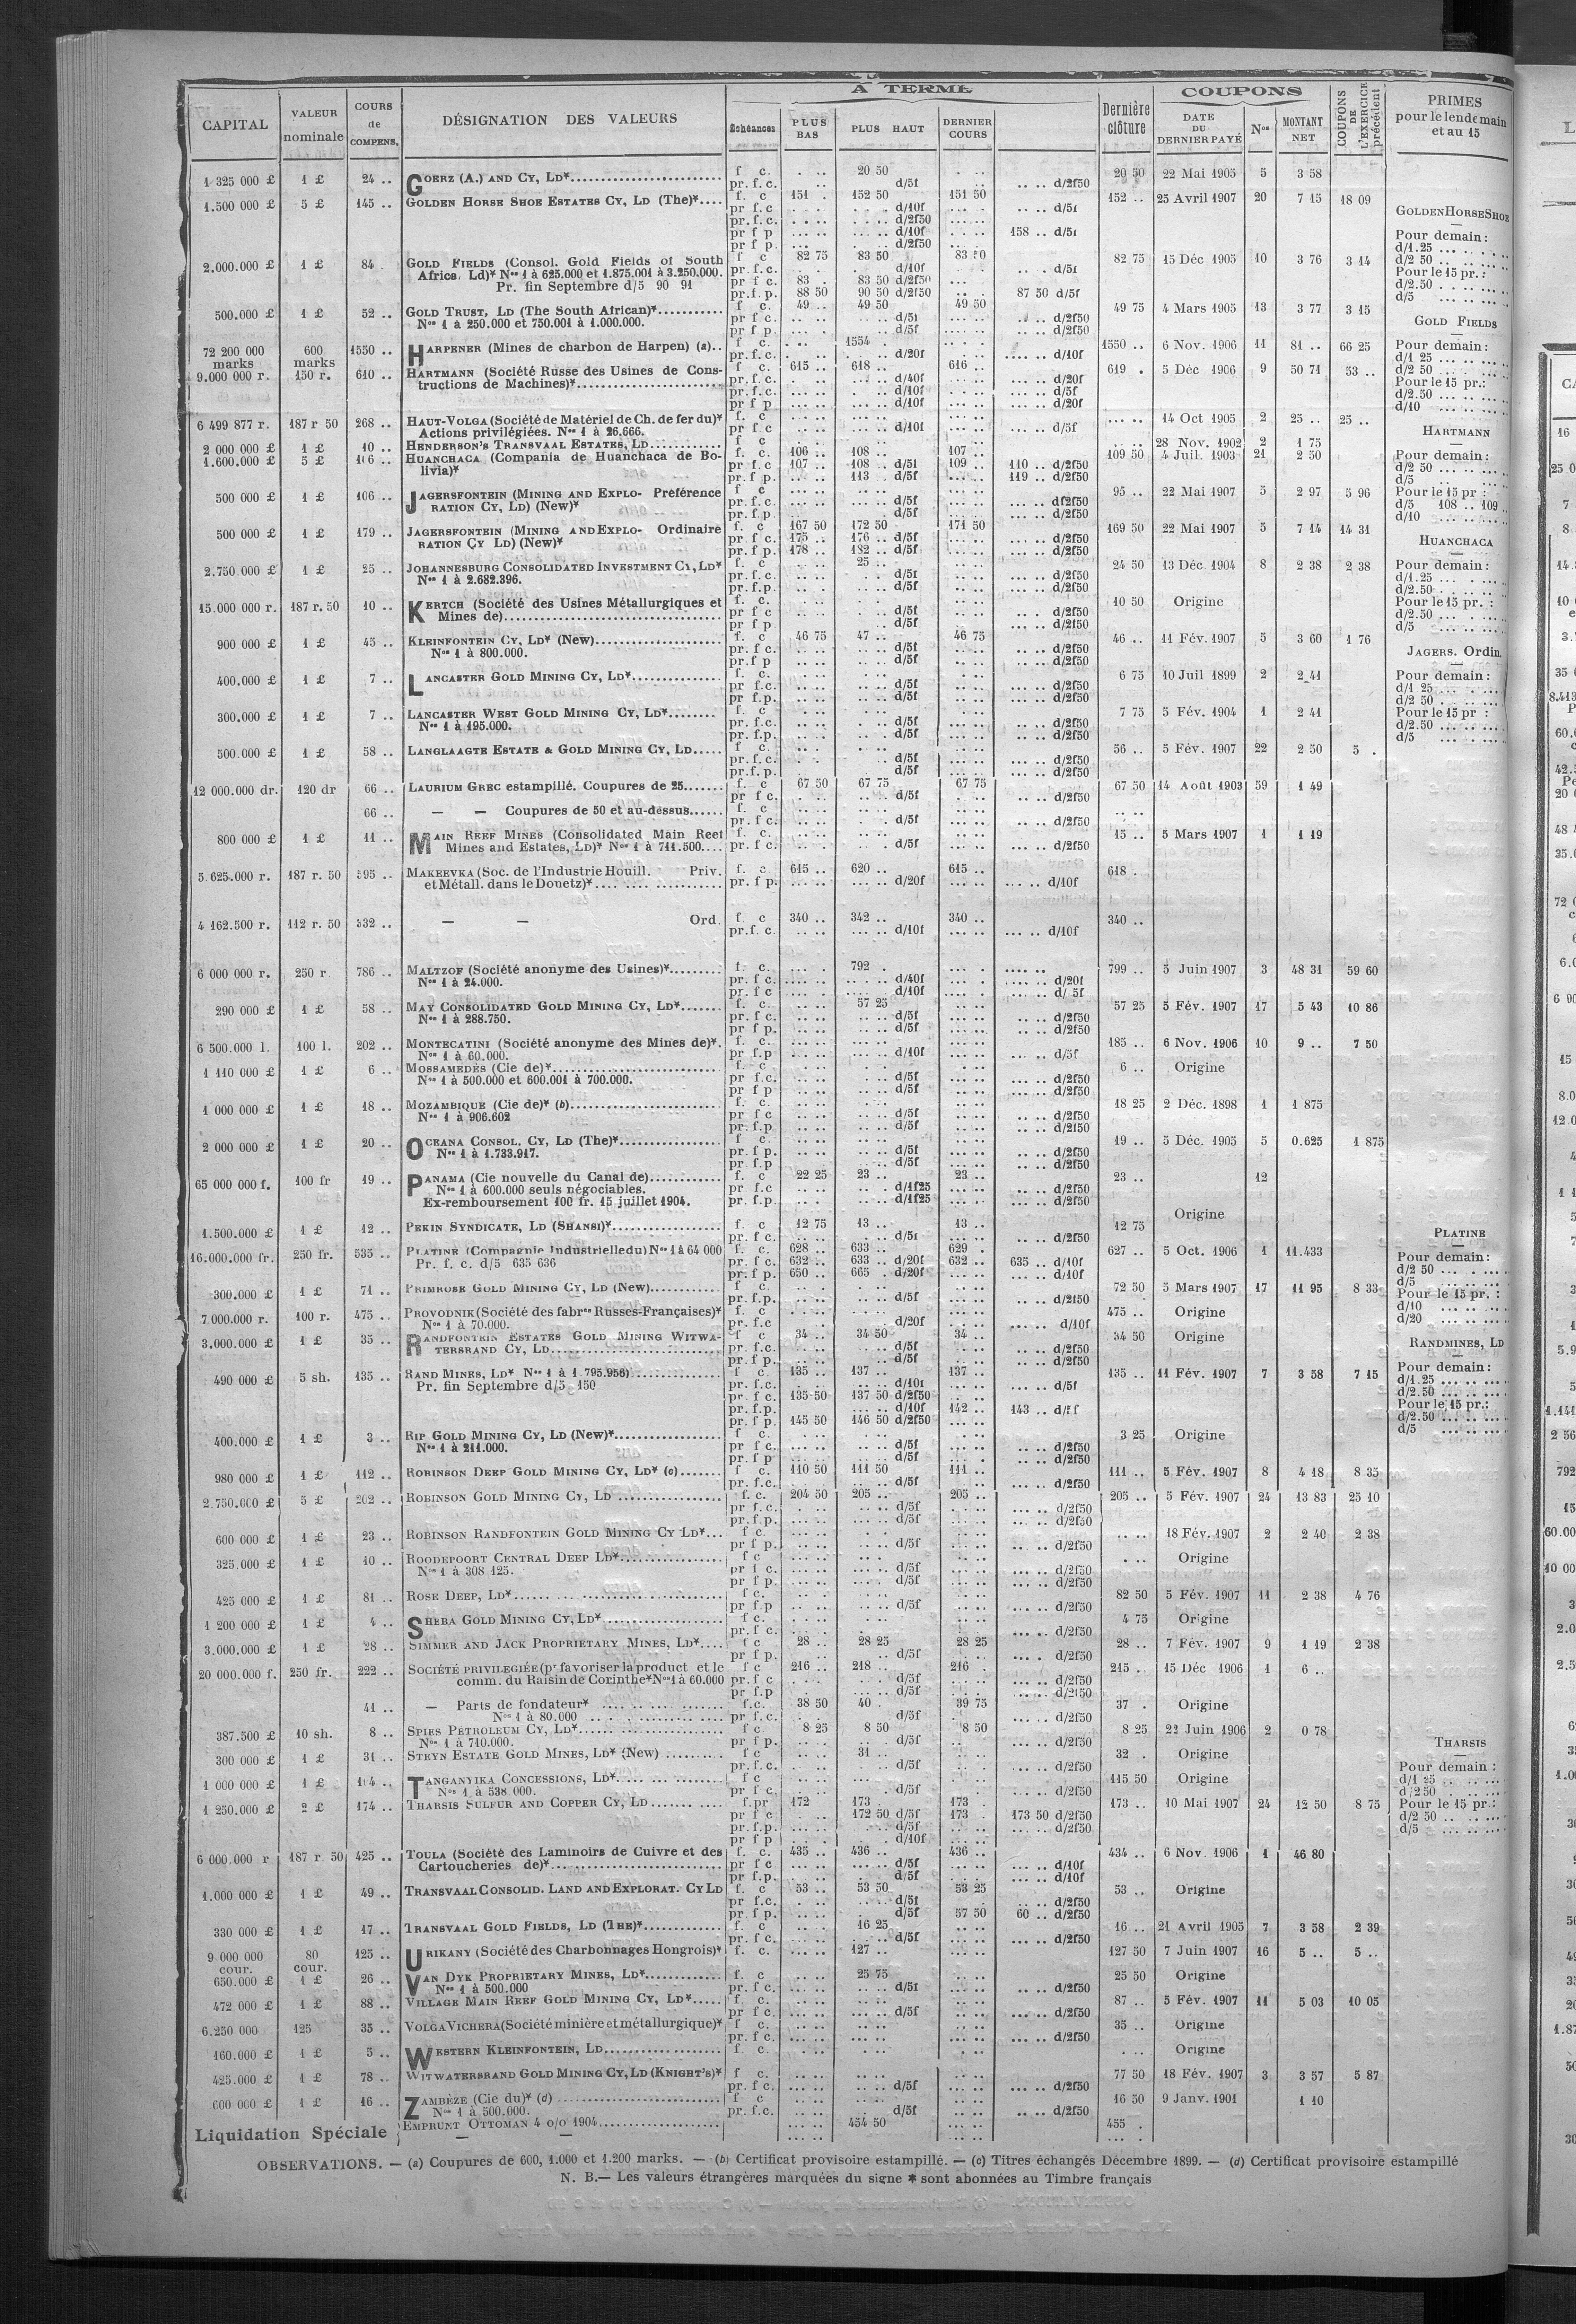 CAPITAL VALEUR nominale COURS de COMPENS. DÉSIGNATION DES VALEURS A TERME Échéances PLUS BAS PLUS HAUT DERNIER COURS Dernière clôture COUPONS DATE DU DERNIER PAYÉ Nos MONTANT NET COUPONS DE L'EXERCICE précédent PRIMES pour le lendemain et au 15
1 325 000 £ 1 £ 24 .. GOERZ (A.) AND CY, LD* f c. 20 50 20 50 22 Mai 1905 5 3 58
pr. f. c. d/5f d/2f50
1.500.000 £ 5 £ 145 .. GOLDEN HORSE SHOE ESTATES CY, LD (The)* f. c 151 . 152 50 151 50 152 .. 25 Avril 1907 20 7 15 18 09
pr f. c d/10f d/5f
pr. f. c. d/2f50
pr f p d/10f 158 .. d/5f
pr f p. d/2f50
2.000.000 £ 1 £ 84 . GOLD FIELDS (Consol. Gold Fields of South f c 82 75 83 50 82 75 15 Déc 1905 10 3 76 3 14
Africa, Ld)* Nos 1 à 625.000 et 1.875.001 à 3.250.000. pr. f. c. d/10f d/5f
Pr. fin Septembre d/5 90 91 pr f c. 83 . 83 50 d/2f50
pr. f. p. 88 50 90 50 d/2f50 87 50 d/5f
500.000 £ 1 £ 52 .. GOLD TRUST, LD (The South African)* f c. 49 .. 49 50 49 50 49 75 4 Mars 1905 13 3 77 3 15
Nos 1 à 250.000 et 750.001 à 1.000.000. pr f c. d/5f d/2f50
pr f p d/5f d/2f50
72 200 000 marks 600 marks 1550 .. HARPENER (Mines de charbon de Harpen) (a) f c. 1554 . 1550 .. 6 Nov. 1906 11 81 .. 66 25
pr. f. c. d/20f d/10f
9.000 000 r. 150 r. 610 .. HARTMANN (Société Russe des Usines de Cons- f. c. 615 .. 618 .. 616 .. 619 . 5 Déc 1906 9 50 71 53 ..
tructions de Machines)* pr. f. c. d/40f d/20f
pr. f. c. d/10f d/5f
pr f p d/10f d/20f
6 499 877 r. 187 r 50 268 .. HAUT-VOLGA (Société de Matériel de Ch. de fer du)* f. c 14 Oct 1905 2 25 .. 25 ..
Actions privilégiées. Nos 1 à 26.666. pr f c d/10f d/5f
2 000 000 £ 1 £ 10 .. HENDERSON'S TRANSVAAL ESTATES, LD f c 28 Nov. 1902 2 1 75
1.600.000 £ 5 £ 106 .. HUANCHACA (Compania de Huanchaca de Bo- f. c. 106 .. 108 .. 107 .. 109 50 4 Juil. 1903 21 2 50
livia)* pr f. c 107 .. 108 .. d/5f 109 .. 110 .. d/2f50
pr. f p. 113 . d/5f 119 .. d/2f50
500 000 £ 1 £ 106 .. JAGERSFONTEIN (MINING AND EXPLO- Préférence f c 95 .. 22 Mai 1907 5 2 97 5 96
RATION CY, LD) (New)* pr. f. c. d/5f d/2f50
pr. f. p d/5f d/2f50
500 000 £ 1 £ 179 .. JAGERSFONTEIN (MINING AND EXPLO- Ordinaire f. c 167 50 172 50 171 50 169 50 22 Mai 1907 5 7 14 14 31
RATION CY LD) (New)* pr f c. 175 .. 176 .. d/5f d/2f50
pr. f p. 178 .. 182 .. d/5f d/2f50
2.750.000 £ 1 £ 25 .. JOHANNESBURG CONSOLIDATED INVESTMENT CY, LD* f. c 25 .. 24 50 13 Déc. 1904 8 2 38 2 38
Nos 1 à 2.682.396. pr. f. c. d/5f d/2f50
pr. f. p. d/5f d/2f50
15.000 000 r. 187 r. 50 10 .. KERTCH (Société des Usines Métallurgiques et f. c. 10 50 Origine
Mines de) pr f c d/5f d/2f50
pr f p d/5f d/2f50
900 000 £ 1 £ 45 .. KLEINFONTEIN CY, LD* (New) f. c 46 75 47 .. 46 75 46 .. 11 Fév. 1907 5 3 60 1 76
Nos 1 à 800.000. pr. f c. d/5f d/2f50
pr. f p d/5f d/2f50
400.000 £ 1 £ 7 .. LANCASTER GOLD MINING CY, LD* f. c. 6 75 10 Juil 1899 2 2 41
pr f. c. d/5f d/2f50
pr f. p. d/5f d/2f50
300.000 £ 1 £ 7 .. LANCASTER WEST GOLD MINING CY, LD* f. c. 7 75 5 Fév. 1904 1 2 41
Nos 1 à 195.000. pr. f. c. d/5f d/2f50
pr. f. p. d/5f d/2f50
500.000 £ 1 £ 58 .. LANGLAAGTE ESTATE & GOLD MINING CY, LD f c. 56 .. 5 Fév. 1907 22 2 50 5 .
pr. f. c. d/5f d/2f50
pr. f. p. d/5f d/2f50
12 000.000 dr. 120 dr 66 .. LAURIUM GREC estampillé. Coupures de 25 f. c 67 50 67 75 67 75 67 50 14 Août 1903 59 1 49
pr f c. d/5f d/2f50
66 .. — — Coupures de 50 et au-dessus f. c
pr. f c. d/5f d/2f50
800 000 £ 1 £ 11 .. MAIN REEF MINES (Consolidated Main Reef f. c. 15 .. 5 Mars 1907 1 1 19
Mines and Estates, LD)* Nos 1 à 711.500 pr. f c. d/5f d/2f50
5.625.000 r. 187 r. 50 595 .. MAKEEVKA (Soc. de l'Industrie Houill. Priv. f. c 615 .. 620 .. 615 .. 618 .
et Métall. dans le Donetz)* pr. f p. d/20f d/10f
4 162.500 r. 112 r. 50 332 .. — — Ord. f. c 340 .. 342 .. 340 .. 340 ..
pr. f. c d/10f d/10f
6 000 000 r. 250 r. 786 .. MALTZOF (Société anonyme des Usines)* f. c. 792 . 799 .. 5 Juin 1907 3 48 31 59 60
Nos 1 à 24.000. pr. f c. d/40f d/20f
pr. f c d/10f d/ 5f
290 000 £ 1 £ 58 .. MAY CONSOLIDATED GOLD MINING CY, LD* f. c. 57 25 57 25 5 Fév. 1907 17 5 43 10 86
Nos 1 à 288.750. pr. f c. d/5f d/2f50
pr f p. d/5f d/2f50
6 500.000 l. 100 l. 202 .. MONTECATINI (Société anonyme des Mines de)*. f. c. 185 .. 6 Nov. 1906 10 9 .. 7 50
Nos 1 à 60.000. pr f.p d/10f d/5f
1 110 000 £ 1 £ 6 .. MOSSAMEDÈS (Cie de)* f c 6 .. Origine
Nos 1 à 500.000 et 600.001 à 700.000. pr f. c. d/5f d/2f50
pr f p d/5f d/2f50
1 000 000 £ 1 £ 18 .. MOZAMBIQUE (Cie de)* (b) f. c. 18 25 2 Déc. 1898 1 1 875
Nos 1 à 906.602 pr f c d/5f d/2f50
pr. f. p d/5f d/2f50
2 000 000 £ 1 £ 20 .. OCEANA CONSOL. CY, LD (The)* f c. 19 .. 5 Déc. 1905 5 0.625 1 875
Nos 1 à 1.733.917. pr. f p. d/5f d/2f50
pr f.p d/5f d/2f50
65 000 000 f. 100 fr 19 .. PANAMA (Cie nouvelle du Canal de) f. c 22 25 23 .. 23 .. 23 .. 12
Nos 1 à 600.000 seuls négociables. pr f.c d/1f25 d/2f50
Ex-remboursement 100 fr. 15 juillet 1904. pr. f.p. d/1f25 d/2f50
1.500.000 £ 1 £ 12 .. PEKIN SYNDICATE, LD (SHANSI)* f. c 12 75 13 .. 13 .. 12 75 Origine
pr f c. d/5f d/2f50
16.000.000 fr. 250 fr. 535 .. PLATINE (Compagnie Industrielle du) Nos 1 à 64 000 f. c. 628 .. 633 .. 629 . 627 .. 5 Oct. 1906 1 11.433
Pr. f. c. d/5 635 636 pr. f c. 632 .. 633 .. d/20f 632 .. 635 .. d/10f
pr. f p. 650 .. 665 . d/20f d/10f
300.000 £ 1 £ 71 .. PRIMROSE GOLD MINING CY, LD (New) f c. 72 50 5 Mars 1907 17 11 95 8 33
pr. f. p. d/5f d/2f50
7.000.000 r. 100 r. 475 .. PROVODNIK (Société des fabres Russes-Françaises)* f. c 475 .. Origine
Nos 1 à 70.000. pr. f.c d/20f d/10f
3.000.000 £ 1 £ 35 .. RANDFONTEIN ESTATES GOLD MINING WITWA- f c 34 .. 34 50 34 .. 34 50 Origine
TERSRAND CY, LD pr. f.c. d/5f d/2f50
pr. f p. d/5f d/2f50
490 000 £ 5 sh. 135 .. RAND MINES, LD* Nos 1 à 1 795.956) f c. 135 .. 137 .. 137 .. 135 .. 11 Fév. 1907 7 3 58 7 15
Pr. fin Septembre d/5 150 pr. f.c. d/10f d/5f
pr. f c. 135 50 137 50 d/2f50
pr. f.p. d/10f 142 .. 143 .. d/5f
pr. f p. 145 50 146 50 d/2f50
400.000 £ 1 £ 3 .. RIP GOLD MINING CY, LD (New)* f c. 3 25 Origine
Nos 1 à 211.000. pr f c. d/5f d/2f50
pr. f p d/5f d/2f50
980 000 £ 1 £ 112 .. ROBINSON DEEP GOLD MINING CY, LD* (c) f c. 110 50 111 50 111 .. 111 .. 5 Fév. 1907 8 4 18 8 35
pr. f.c. d/5f d/2f50
2.750.000 £ 5 £ 202 .. ROBINSON GOLD MINING CY, LD f. c. 204 50 205 .. 205 .. 205 .. 5 Fév. 1907 24 13 83 25 10
pr f.c. d/5f d/2f50
pr. f.p. d/5f d/2f50
600 000 £ 1 £ 23 .. ROBINSON RANDFONTEIN GOLD MINING CY LD* f c. 18 Fév. 1907 2 2 40 2 38
pr f p. d/5f d/2f50
325.000 £ 1 £ 10 .. ROODEPOORT CENTRAL DEEP LD* f c Origine
Nos 1 à 308 125. pr f c. d/5f d/2f50
pr f p. d/5f d/2f50
425 000 £ 1 £ 81 .. ROSE DEEP, LD* f c. 82 50 5 Fév. 1907 11 2 38 4 76
pr f.p d/5f d/2f50
1 200 000 £ 1 £ 4 .. SHEBA GOLD MINING CY, LD* f c. 4 75 Origine
pr. f c. d/2f50
3.000.000 £ 1 £ 28 .. SIMMER AND JACK PROPRIETARY MINES, LD* f c 28 .. 28 25 28 25 28 .. 7 Fév. 1907 9 1 19 2 38
pr f p. d/5f d/2f50
20 000.000 f. 250 fr. 222 .. SOCIÉTÉ PRIVILEGIÉE (pr favoriser la product et le f c 216 .. 218 .. 216 . 215 .. 15 Déc 1906 1 6 ..
comm. du Raisin de Corinthe* Nos 1 à 60.000 pr. f c d/5f d/2f50
pr f.p d/5f d/2f50
41 .. — Parts de fondateur* f.c. 38 50 40 . 39 75 37 . Origine
Nos 1 à 80.000 pr f.c. d/5f d/2f50
387.500 £ 10 sh. 8 .. SPIES PETROLEUM CY, LD* f c 8 25 8 50 8 50 8 25 22 Juin 1906 2 0 78
Nos 1 à 710.000. pr f p. d/5f d/2f50
300 000 £ 1 £ 31 .. STEYN ESTATE GOLD MINES, LD* (New) f c 31 .. 32 . Origine
pr. f.c. d/2f50
1 000 000 £ 1 £ 104 .. TANGANYIKA CONCESSIONS, LD* f c 115 50 Origine
Nos 1 à 538 000. pr f c. d/5f d/2f50
1 250.000 £ 2 £ 174 .. THARSIS SULFUR AND COPPER CY, LD f.pr 172 173 . 173 . 173 .. 10 Mai 1907 24 12 50 8 75
pr f c 172 50 d/5f 173 . 173 50 d/2f50
pr. f.p. d/5f d/2f50
pr f p d/10f
6 000.000 r 187 r. 50 425 .. TOULA (Société des Laminoirs de Cuivre et des f. c. 435 .. 436 .. 436 .. 434 .. 6 Nov. 1906 1 46 80
Cartoucheries de)* pr f c d/5f d/10f
pr f.p. d/5f d/10f
1.000 000 £ 1 £ 49 .. TRANSVAAL CONSOLID. LAND AND EXPLORAT. CY LD f. c 53 .. 53 50 53 25 53 .. Origine
pr f.c. d/5f d/2f50
pr f p. d/5f 57 50 60 .. d/2f50
330 000 £ 1 £ 17 .. TRANSVAAL GOLD FIELDS, LD (THE)* f. c 16 25 16 .. 21 Avril 1905 7 3 58 2 39
pr. f c. d/5f d/2f50
9.000 000 cour. 80 cour. 125 .. URIKANY (Société des Charbonnages Hongrois)* f. c. 127 .. 127 50 7 Juin 1907 16 5 .. 5 ..
650.000 £ 1 £ 26 .. VAN DYK PROPRIETARY MINES, LD* f. c 25 75 25 50 Origine
Nos 1 à 500.000 pr. f c. d/5f d/2f50
472 000 £ 1 £ 88 .. VILLAGE MAIN REEF GOLD MINING CY, LD* f. c. 87 .. 5 Fév. 1907 11 5 03 10 05
pr f c. d/5f d/2f50
6.250 000 125 35 .. VOLGA VICHERA (Société minière et métallurgique)* f c. 35 .. Origine
pr. f c. d/2f50
160.000 £ 1 £ 5 .. WESTERN KLEINFONTEIN, LD f. c. Origine
425.000 £ 1 £ 78 .. WITWATERSRAND GOLD MINING CY, LD (KNIGHT'S)* f c. 77 50 18 Fév. 1907 3 3 57 5 87
pr. f c. d/5f d/2f50
600 000 £ 1 £ 16 .. ZAMBÈZE (Cie du)* (d) f c 16 50 9 Janv. 1901 1 10
Nos 1 à 500.000. pr. f.c. d/5f d/2f50
Liquidation Spéciale EMPRUNT OTTOMAN 4 o/o 1904 454 50 455 .
— —
GOLDEN HORSE SHOE
Pour demain :
d/1.25
d/2 50
Pour le 15 pr. :
d/2.50
d/5
GOLD FIELDS
Pour demain :
d/1 25
d/2 50
Pour le 15 pr. :
d/2.50
d/10
HARTMANN
Pour demain :
d/2 50
d/5
Pour le 15 pr :
d/5 108 .. 109 ..
d/10
HUANCHACA
Pour demain :
d/1.25
d/2.50
Pour le 15 pr. :
d/2.50
d/5
JAGERS. Ordin.
Pour demain :
d/1 25
d/2 50
Pour le 15 pr :
d/2.50
d/5
PLATINE
Pour demain :
d/2 50
d/5
Pour le 15 pr. :
d/10
d/20
RANDMINES, LD
Pour demain :
d/1.25
d/2.50
Pour le 15 pr. :
d/2.50
d/5
THARSIS
Pour demain :
d/1 25
d/2 50
Pour le 15 pr. :
d/2 50
d/5
OBSERVATIONS. — (a) Coupures de 600, 1.000 et 1.200 marks. — (b) Certificat provisoire estampillé. — (c) Titres échangés Décembre 1899. — (d) Certificat provisoire estampillé
N. B.— Les valeurs étrangères marquées du signe * sont abonnées au Timbre français